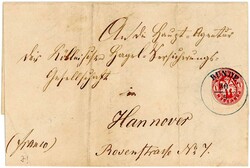 An die Haupt-Agentur
der Kölnischen Hagel-Versicherungs-
Gesellschaft
in
Hannover
(franco)
Rosenstrasse No 7.